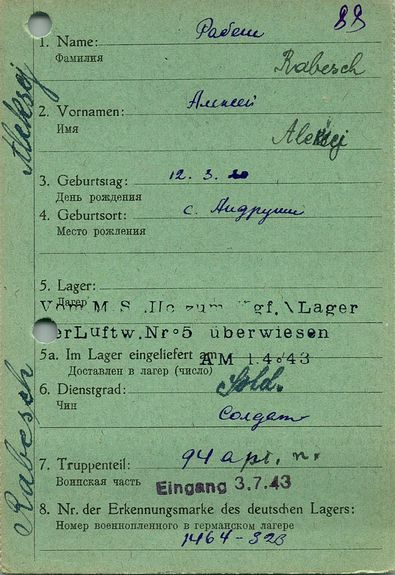 88
1. Name: Рабеш
Фамилия
Rabesch
2. Vornamen: Алексей
Имя
Aleksej
3. Geburtstag: 12. 3.
День рождения
4. Geburtsort: с. Андруши
Место рождения
5. Lager:
Лагер
Vom M.S. IIc zum Kgf. Lager
der Luftw. Nr 5 überwiesen
5a. Im Lager eingeliefert am
AM 1.4 43
Доставлен в лагер (число)
6. Dienstgrad: Sold.
Чин
Солдат
7. Truppenteil: 94 арт. п.
Воинская часть
Eingang 3.7.43
8. Nr. der Erkennungsmarke des deutschen Lagers:
Номер военнопленного в германском лагере
1464-32B
Rabesch Aleksej